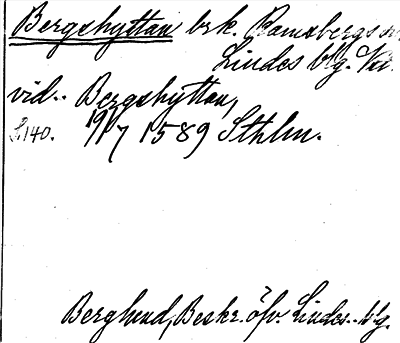 Bergshyttan brk. Ramsbergs sn.
Lindes blg. Vm.
vid.. Bergshyttan,
S. 140. 19/7 1589 Sthlm.
Berglund, Beskr. öfv. Lindes.. blg.